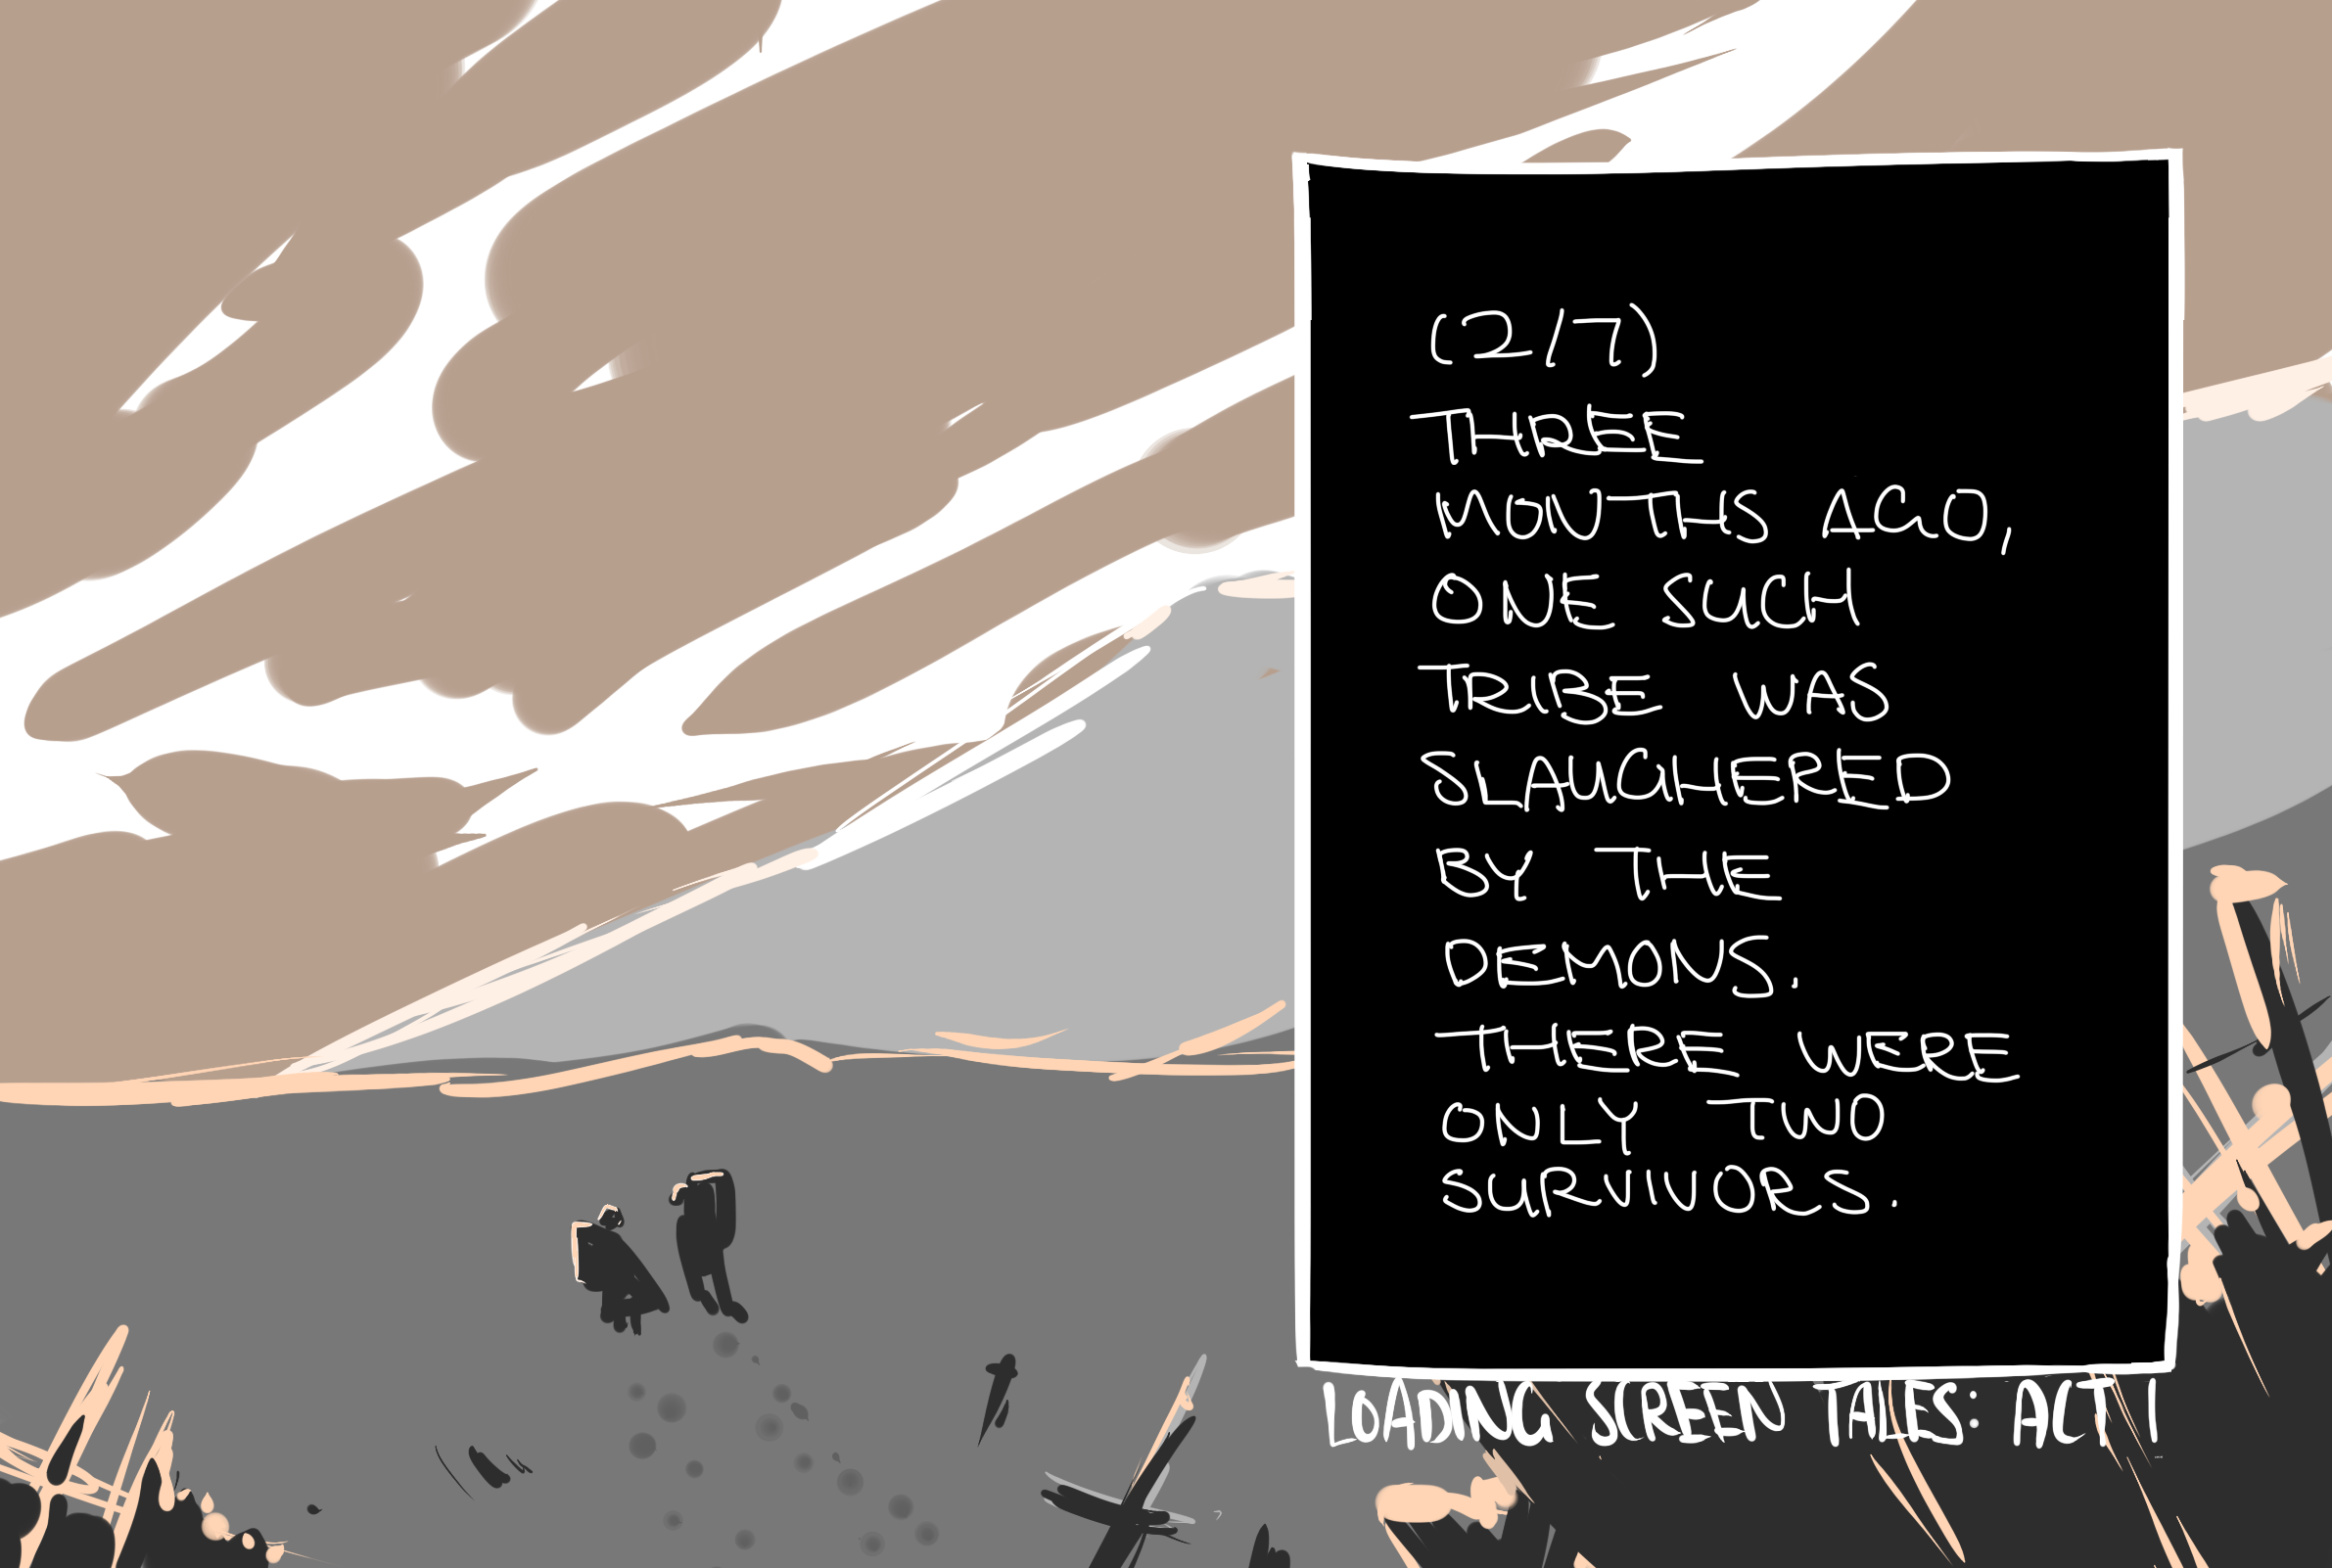 (2/7)
THREE
MONTHS AGO,
ONE SUCH
TRIBE WAS
SLAUGHERED
BY THE
DEMONS.
THERE WERE
ONLY TWO
SURVIVORS.
LOADING SCREEN TALES: ACT I